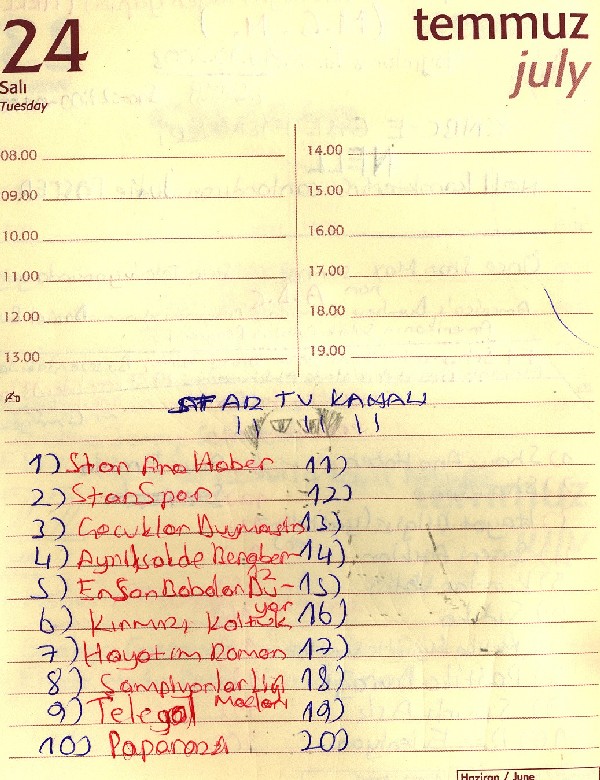 24
Salı
Tuesday
temmuz
july
08.00
09.00
10.00
11.00
12.00
13.00
14.00
15.00
16.00
17.00
18.00
19.00
STAR TV KANALI
11 11 11
1) Star Ana Haber
2) Star Spor
3) Çocuklar Duymasın
4) Ayrılsakda Beraber
5) En Son Babalar Du-
yar
6) Kırmızı Koltuk
7) Hayatım Roman
8) Şampiyonlar Lig
Maçları
9) Telegol
10) Paparazzi
11)
12)
13)
14)
15)
16)
17)
18)
19)
20)
Haziran / June